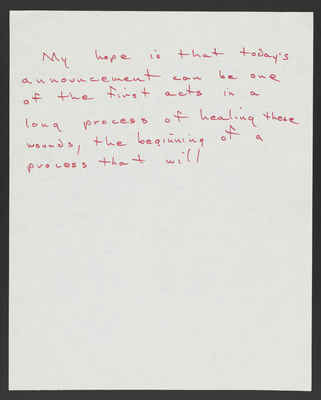 My hope is that today's
announcement can be one
of the first acts in a
long process of healing these
wounds, the beginning of a
process that will